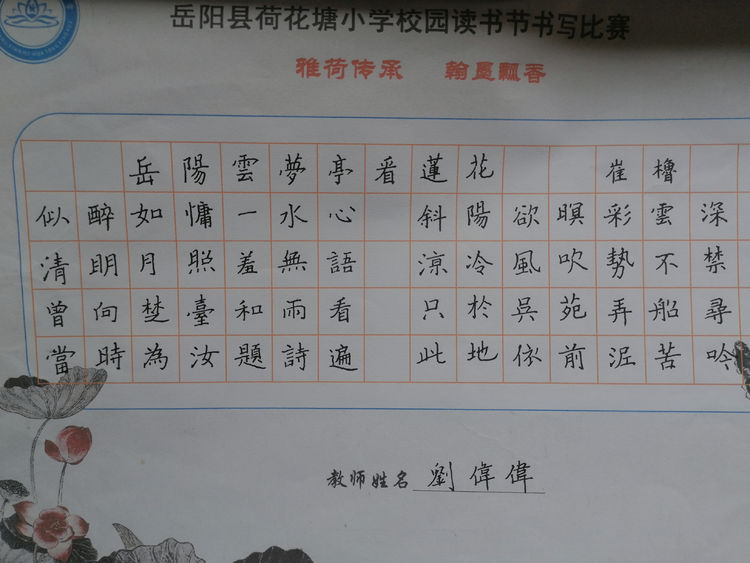 岳阳县荷花塘小学校园读书节书写比赛
雅荷传承 翰墨飘香
岳陽雲夢亭看蓮花 崔櫓
似醉如慵一水心 斜陽欲暝彩雲深
清明月照羞無語 涼冷風吹勢不禁
曾向楚臺和雨看 只於吳苑弄船尋
當時為汝題詩遍 此地依前泥苦吟
教师姓名 劉偉偉